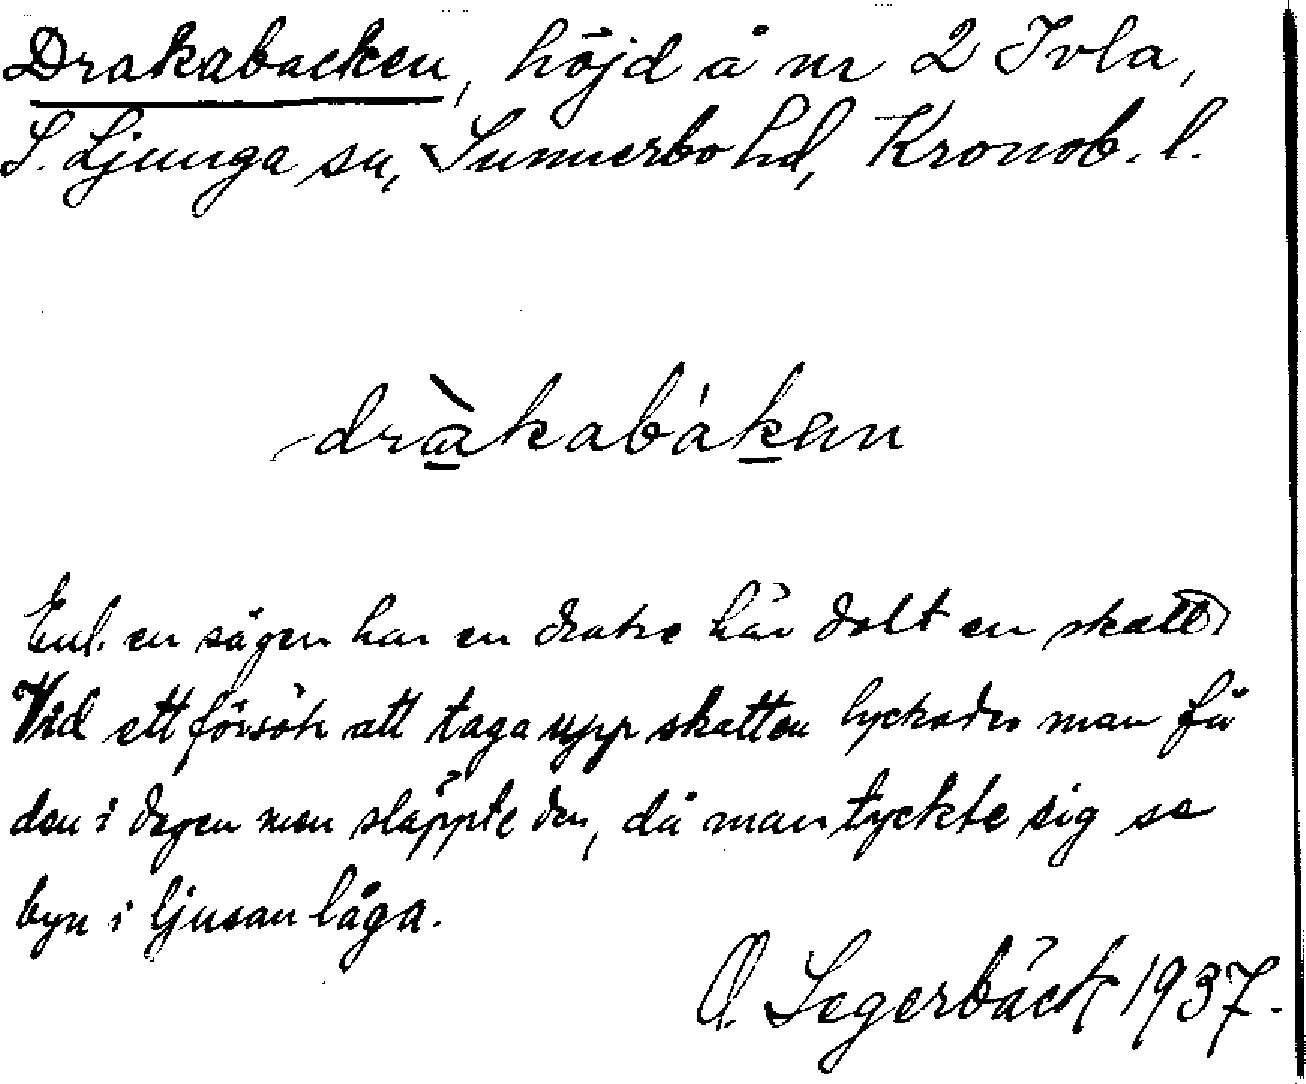 Drakabacken, höjd å nr 2 Ivla,
S. Ljunga sn, Sunnerbo hd, Kronob. l.
dràkabàkan
Enl. en sägen har en drake här dolt en skatt.
Vid ett försök att taga upp skatten lyckades man få
den i dagen men släppte den, då man tyckte sig se
byn i ljusan låga.
O. Segerbäck 1937.